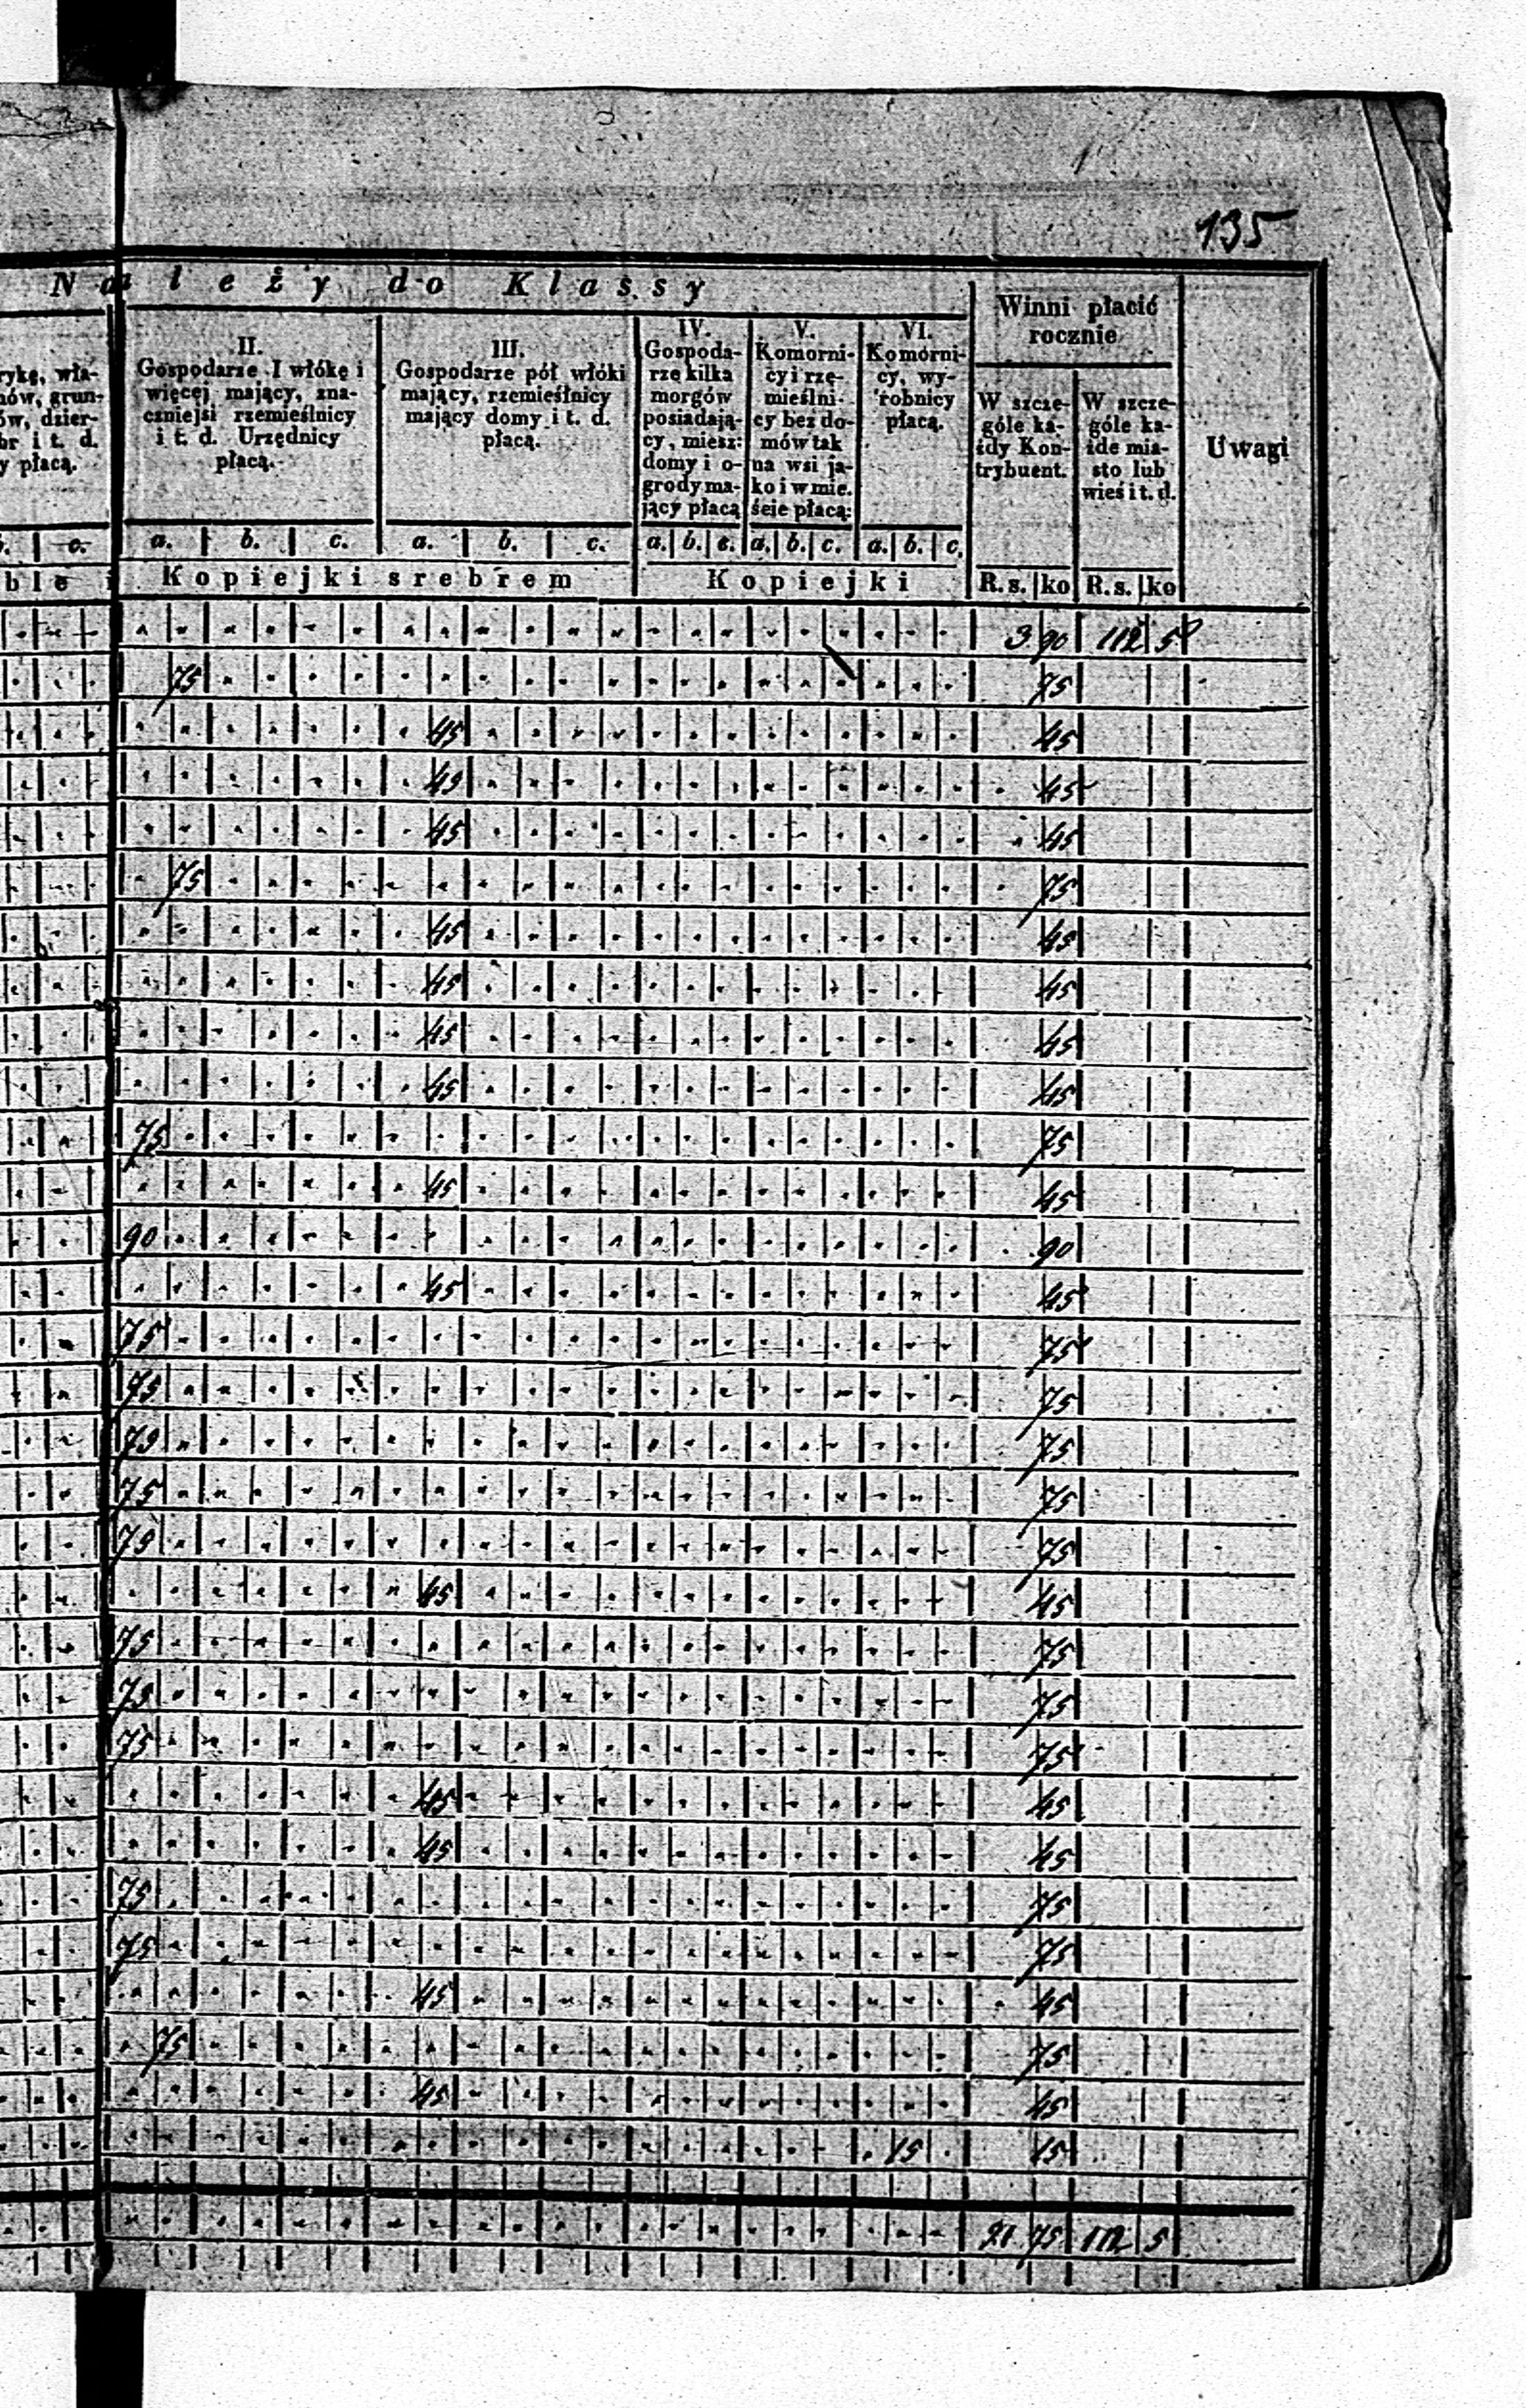 135
Należy do Klassy
rykę, wła-
nów, grun-
ów, dzier-
br i t. d.
y płacą.
II.
Gospodarze I włókę i
więcej mający, zna-
czniejsi rzemieślnicy
i t. d. Urzędnicy
płacą.
III.
Gospodarze pół włóki
mający, rzemieślnicy
mający domy i t. d.
płacą.
IV.
Gospoda-
rze kilka
morgów
posiadają-
cy, miesz:
domy i o-
grody ma-
jący płacą
V.
Komorni-
cy i rze-
mieślni-
cy bez do-
mów tak
na wsi ja-
ko i w mie.
ście płacą:
VI.
Komorni-
cy, wy-
robnicy
płacą.
Winni płacić
rocznie
W szcze-
góle ka-
żdy Kon-
trybuent.
W szcze-
góle ka-
żde mia-
sto lub
wieś i t. d.
Uwagi
b. c. a. b. c. a. b. c. a. b. c. a. b. c. a. b. c.
ble i Kopiejki srebrem Kopiejki R.s. ko R.s. ko
3 90 112 5
75 75
45 45
45 45
45 45
75 75
45 45
45 45
45 45
45 45
75 75
45 45
90 90
45 45
75 75
75 75
75 75
75 75
75 75
45 45
75 75
75 75
75 75
45 45
45 45
75 75
75 75
45 45
75 75
45 45
15 15
21 75 112 5